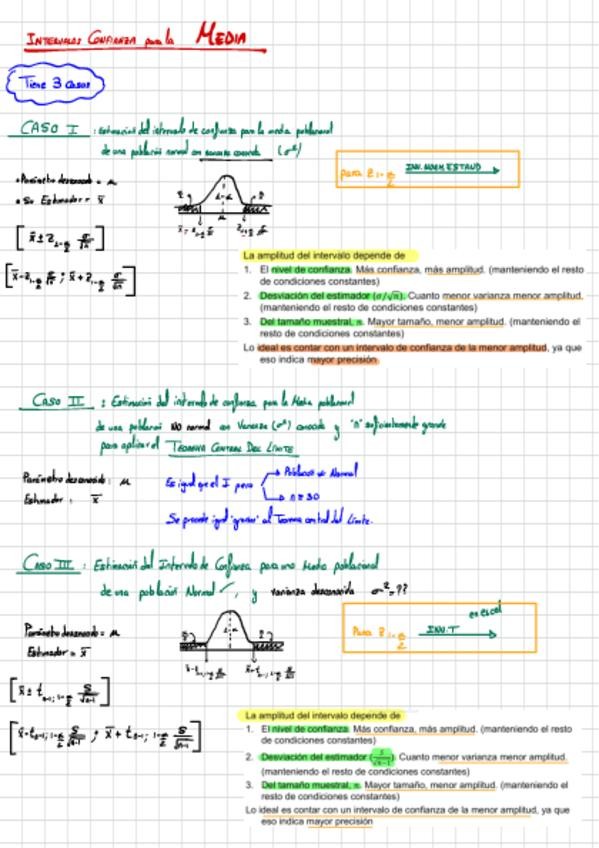 INTERVALOS CONFIANZA para la MEDIA
Tiene 3 casos
CASO I : Estimación del intervalo de confianza para la media poblacional
de una población normal con varianza conocida (σ²)
para Z 1-α/2 INV.NORM.ESTAND
• Parámetro desconocido = μ
• Su Estimador = x̄
1-α
μ
[x̄ ± Z 1-α/2 σ/√n]
[x̄ - Z 1-α/2 σ/√n ; x̄ + Z 1-α/2 σ/√n]
La amplitud del intervalo depende de
1. El nivel de confianza. Más confianza, más amplitud. (manteniendo el resto
de condiciones constantes)
2. Desviación del estimador (σ/√n). Cuanto menor varianza menor amplitud.
(manteniendo el resto de condiciones constantes)
3. Del tamaño muestral, n. Mayor tamaño, menor amplitud. (manteniendo el
resto de condiciones constantes)
Lo ideal es contar con un intervalo de confianza de la menor amplitud, ya que
eso indica mayor precisión
CASO II : Estimación del intervalo de confianza para la Media poblacional
de una población NO normal con Varianza (σ²) conocida y "n" suficientemente grande
para aplicar el TEOREMA CENTRAL DEL LÍMITE
Parámetro desconocido: μ
Estimador: x̄
Es igual que el I pero
Población no Normal
n ≥ 30
Se procede igual "gracias" al Teorema central del Límite.
CASO III : Estimación del Intervalo de Confianza para una Media poblacional
de una población Normal, y varianza desconocida σ² = ??
en excel
Para 1-α/2 INV.T
Parámetro desconocido = μ
Estimador = x̄
1-α
[x̄ ± t n-1; 1-α/2 S/√n-1]
[x̄ - t n-1; 1-α/2 S/√n-1 ; x̄ + t n-1; 1-α/2 S/√n-1]
La amplitud del intervalo depende de
1. El nivel de confianza. Más confianza, más amplitud. (manteniendo el resto
de condiciones constantes)
2. Desviación del estimador (S/√n-1). Cuanto menor varianza menor amplitud.
(manteniendo el resto de condiciones constantes)
3. Del tamaño muestral, n. Mayor tamaño, menor amplitud. (manteniendo el
resto de condiciones constantes)
Lo ideal es contar con un intervalo de confianza de la menor amplitud, ya que
eso indica mayor precisión